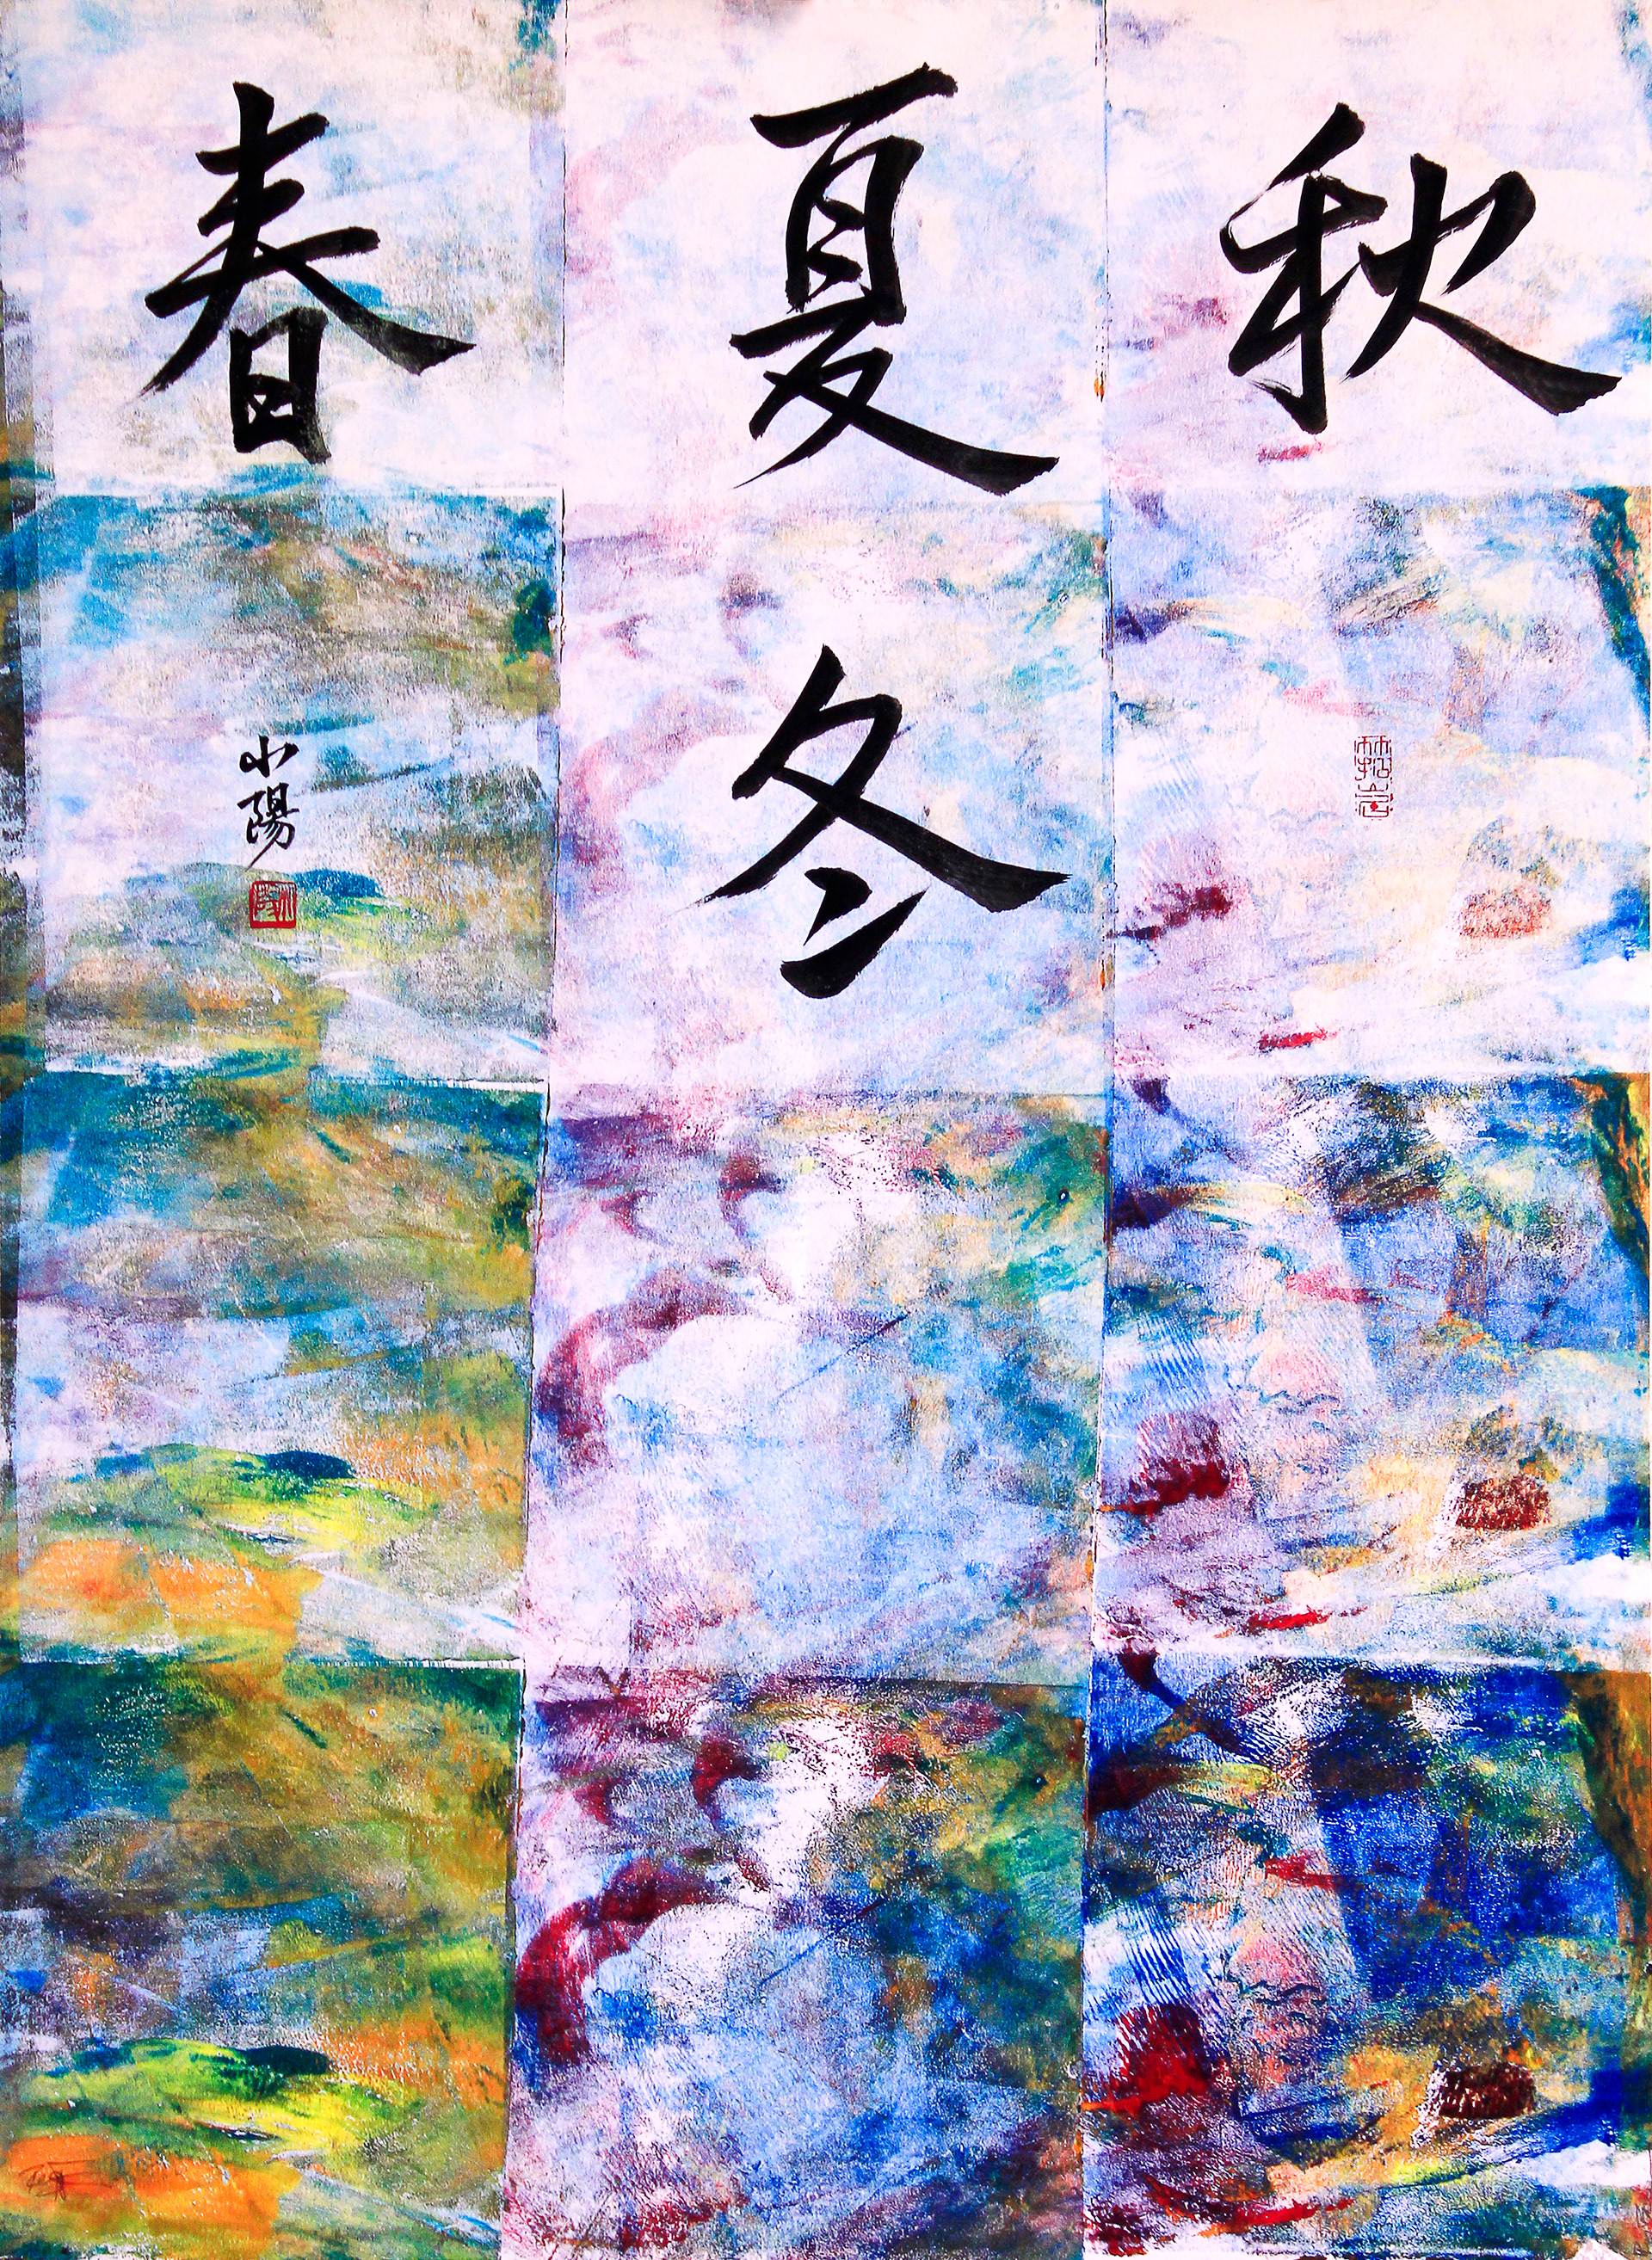 春 夏 秋
冬
小陽